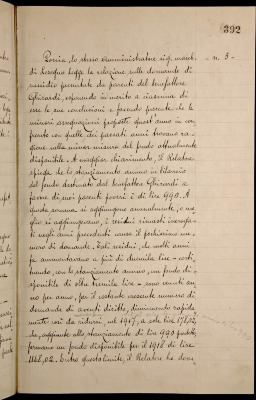 392
- n. 3 -
Poscia, lo stesso Amministratore sig. march.
di Soragna legge la relazione sulle domande di
sussidio presentate da parenti del benefattore
Ghirardi, esponendo in merito a ciascuna di
esse le sue conclusioni e facendo presente che le
minori assegnazioni proposte quest'anno in con-
fronto con quelle dei passati anni trovano ra-
gione nella minor misura del fondo attualmente
disponibile. A maggior chiarimento, il Relatore
spiega che lo stanziamento annuo in bilancio
del fondo destinato dal benefattore Ghirardi a
favore di suoi parenti poveri è di lire 990. A
questa somma si aggiungono annualmente, o me-
glio si aggiungevano, i residui rimasti inerogati
ti negli anni precedenti causa il pochissimo nu-
mero di domande. Tali residui, che molti anni
fa ammontavano a più di duemila lire - costi-
tuendo, con lo stanziamento annuo, un fondo di-
sponibile di oltre tremila lire - sono venuti an-
no per anno, per il costante crescente numero di
domande di aventi diritto, diminuendo rapida-
mente così da ridursi, nel 1917, a sole lire 178,02,
che, aggiunte allo stanziamento di lire 990 suddette,
formano un fondo disponibile per il 1918 di lire
1168,02. Entro questo limite, il Relatore ha dovu-